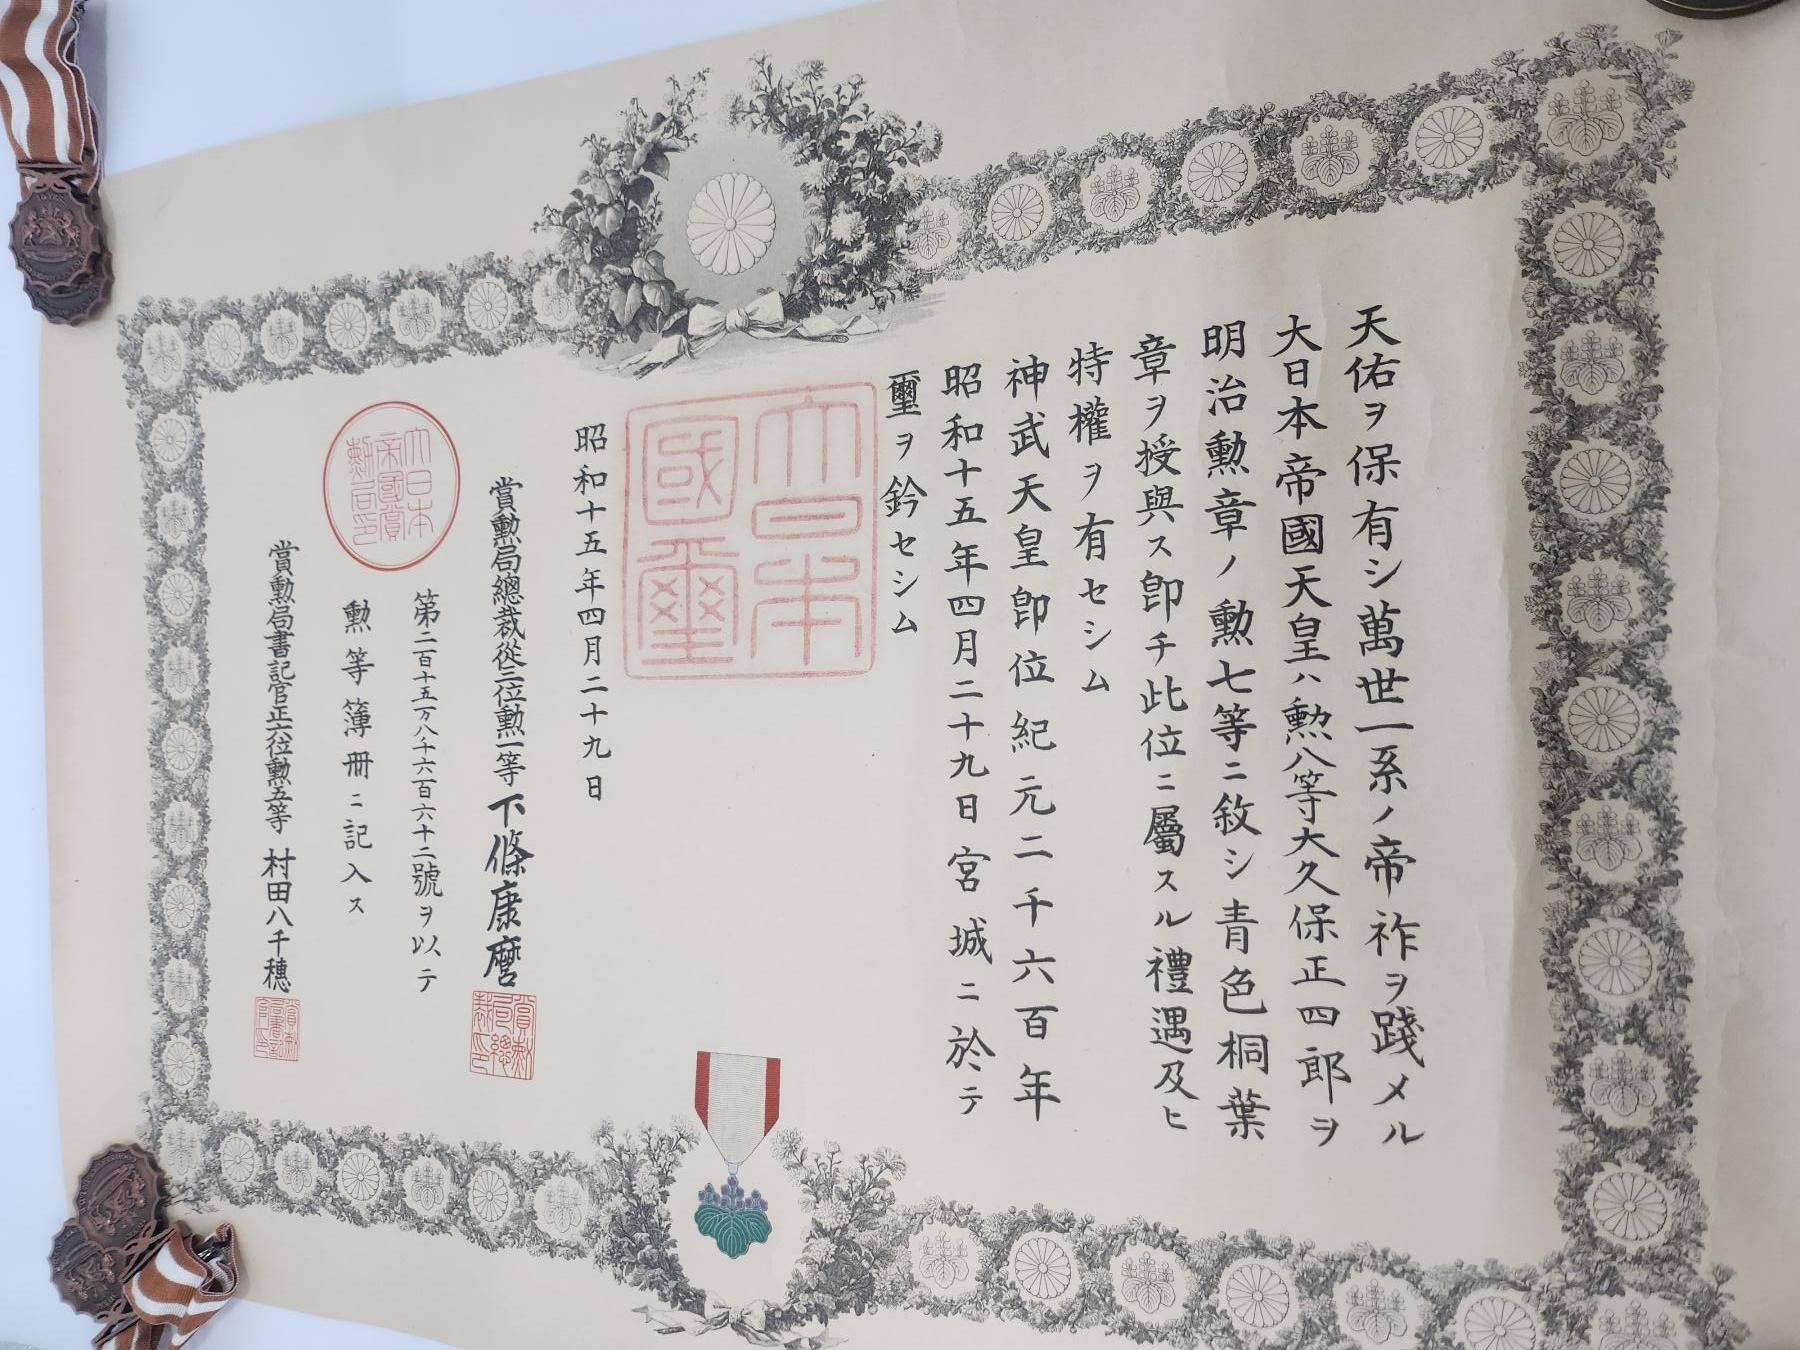 天佑ヲ保有シ萬世一系ノ帝祚ヲ踐メル
大日本帝國天皇ハ勲八等大久保正四郎ヲ
明治勲章ノ勲七等ニ敘シ青色桐葉
章ヲ授與ス卽チ此位ニ屬スル禮遇及ヒ
特權ヲ有セシム
神武天皇卽位紀元二千六百年
昭和十五年四月二十九日宮城ニ於テ
璽ヲ鈐セシム
大日本國璽
昭和十五年四月二十九日
賞勲局總裁從三位勲一等下條康麿
賞勲局總裁印
第二百十五万八千六百六十二號ヲ以テ
勲等簿冊ニ記入ス
大日本帝國賞勲局印
賞勲局書記官正六位勲五等 村田八千穗